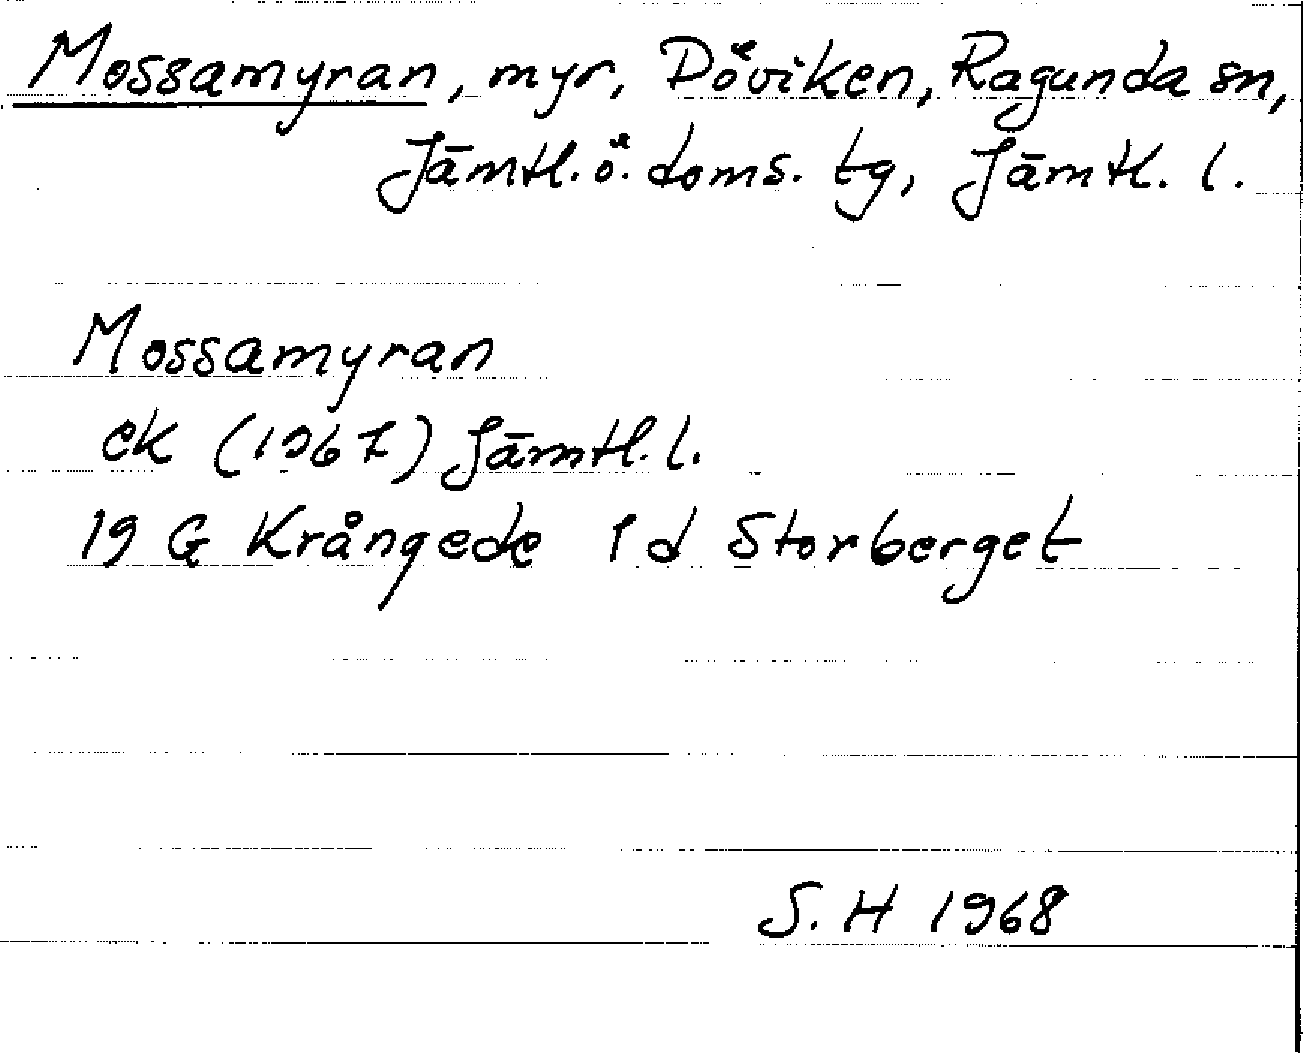 Mossamyran, myr, Döviken, Ragunda sn,
Jämtl. ö. doms. tg, Jämtl. l.
Mossamyran
ek (1967) Jämtl. l.
19 G Krångede 1 d Storberget
S. H 1968